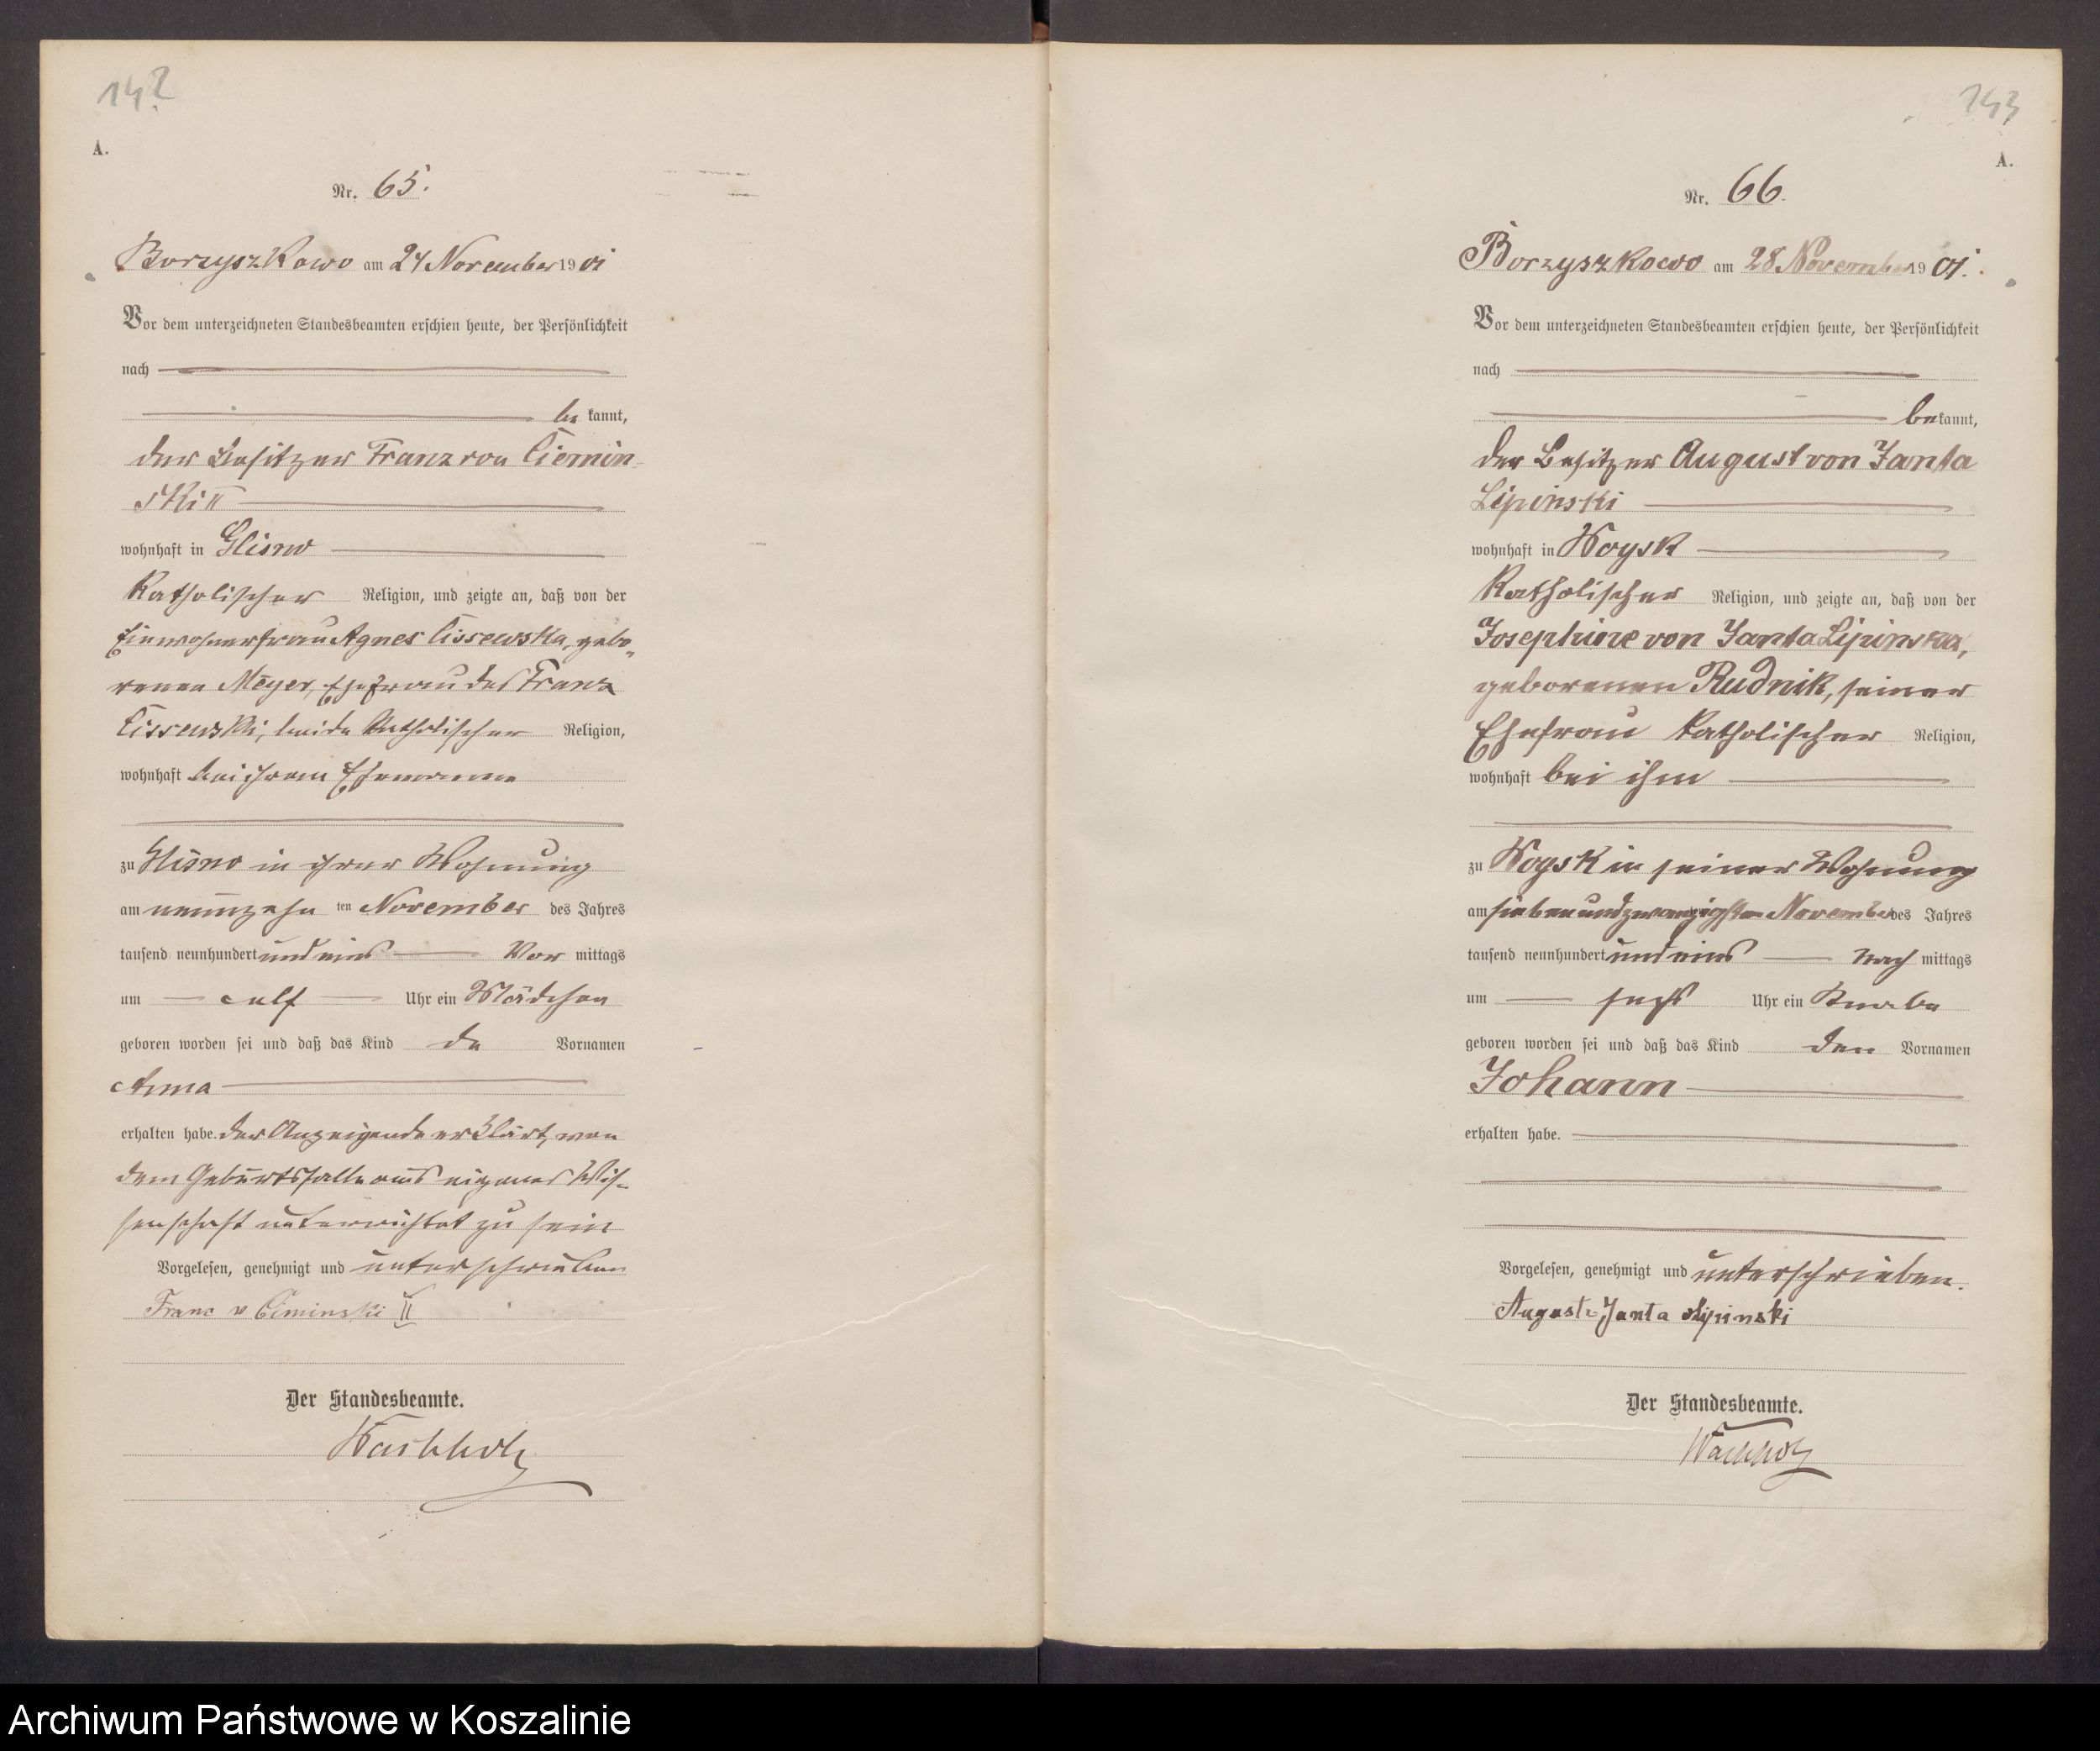 142
A.
Nr. 65.
Borzyszkowo am 24 November 1901
Vor dem unterzeichneten Standesbeamten erschien heute, der Persönlichkeit
nach
be kannt,
der Besitzer Franz von Ciemin-
ski II
wohnhaft in Glisno
Katholischer Religion, und zeigte an, daß von der
Einwohnerfrau Agnes Cissewska, gebo-
renen Meyer, Ehefrau des Franz
Cissewski, beide katholischer Religion,
wohnhaft bei ihrem Ehemanne
zu Glisno in ihrer Wohnung
am neunzehn ten November des Jahres
tausend neunhundert und eins Vor mittags
um elf Uhr ein Mädchen
geboren worden sei und daß das Kind de Vornamen
Anna
erhalten habe. Der Anzeigende erklärt, von
dem Geburtsfalle aus eigener Wis-
senschaft unterrichtet zu sein
Vorgelesen, genehmigt und unterschrieben
Franc v Ciminski II
Der Standesbeamte.
Wachholz
143
A.
Nr. 66.
Borzyszkowo am 28 November 1901.
Vor dem unterzeichneten Standesbeamten erschien heute, der Persönlichkeit
nach
bekannt,
der Besitzer August von Janta
Lipinski
wohnhaft in Woysk
Katholischer Religion, und zeigte an, daß von der
Josephine von Janta Lipinska,
geborenen Rudnik, seiner
Ehefrau katholischer Religion,
wohnhaft bei ihm
zu Woysk in seiner Wohnung
am siebenundzwanzigsten November des Jahres
tausend neunhundert und eins Nach mittags
um sechs Uhr ein Knabe
geboren worden sei und daß das Kind den Vornamen
Johann
erhalten habe.
Vorgelesen, genehmigt und unterschrieben.
August v Janta Lipinski
Der Standesbeamte.
Wachholz
Archiwum Państwowe w Koszalinie